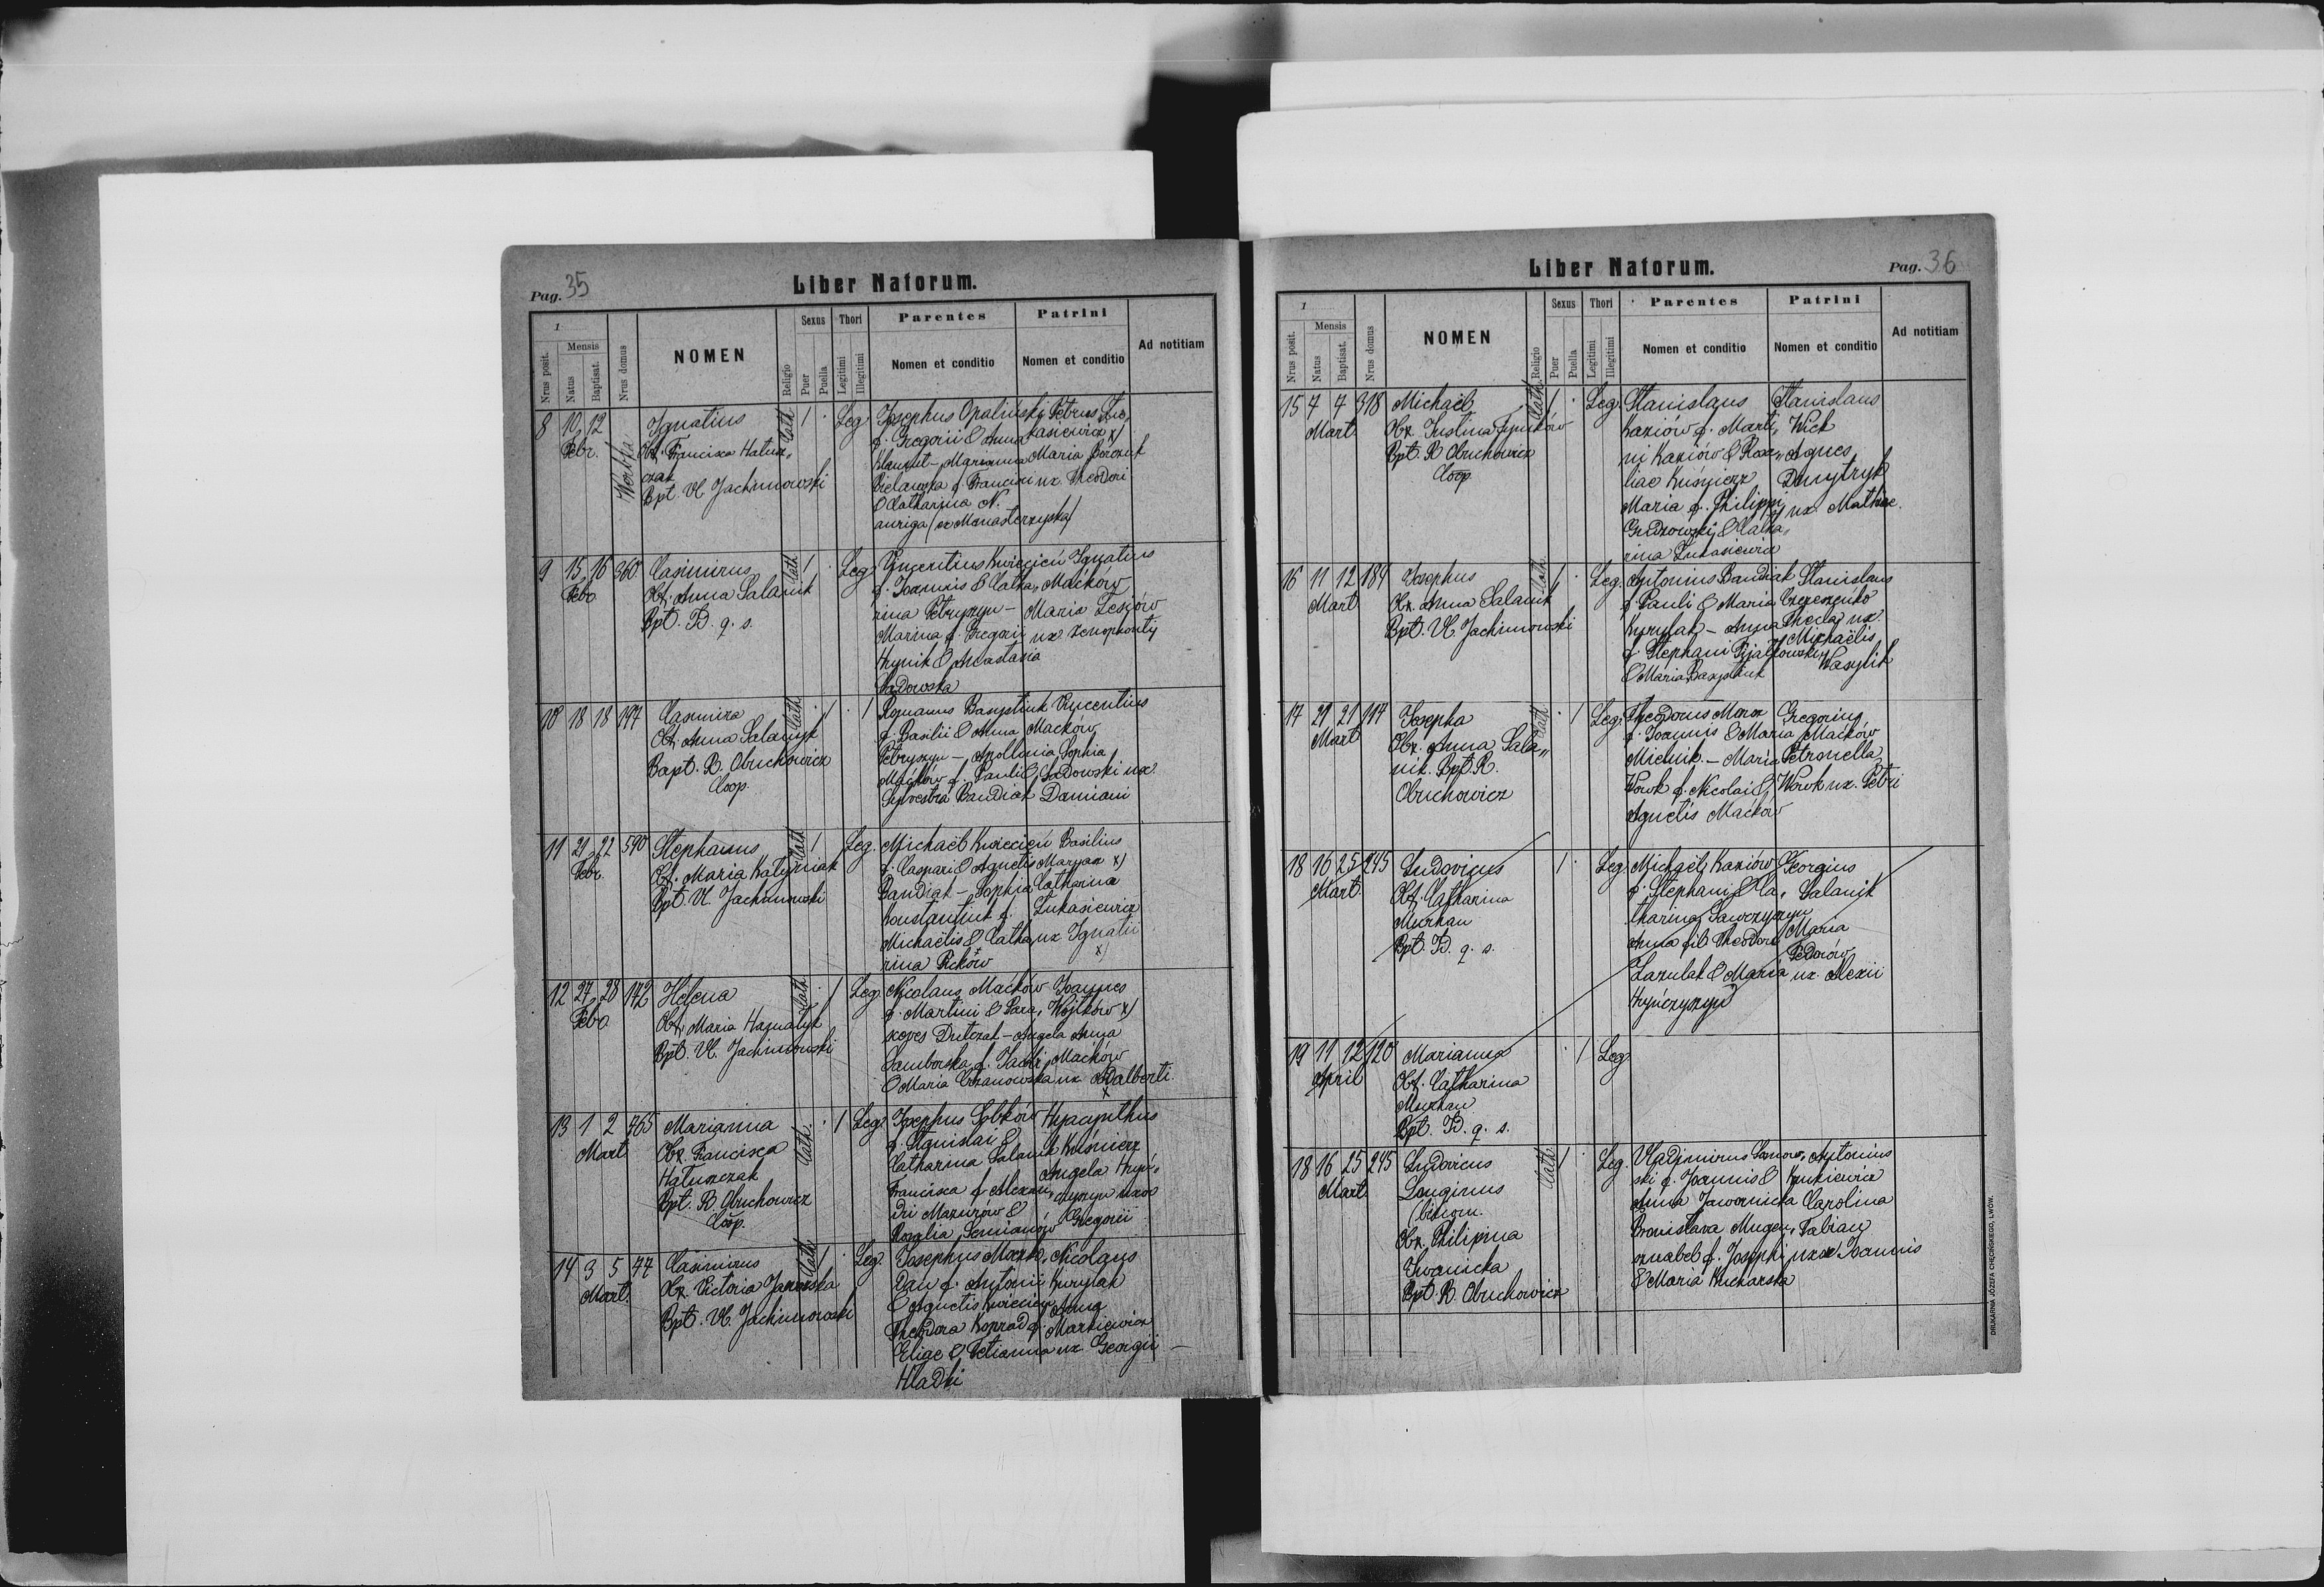 Pag. 35
Liber Natorum.
1
Nrus posit.
Mensis
Natus
Baptisat.
Nrus domus
NOMEN
Religio
Sexus
Puer
Puella
Thori
Legitimi
Illegitimi
Parentes
Nomen et conditio
Patrini
Nomen et conditio
Ad notitiam
8 10 12 Febr.
Ignatius
Obst. Francisca Hałusz„
czak
Bpt. Vl. Jachimowski
Cath. 1 . Leg.
Josephus Opaliński
f. Gregorii & Anna
- Marianna
Bielawska f. Francisci
& Catharina N.
auriga (ex Monasterzyska)
Petrus Łu„
kasiewicz x)
Maria
ux. Theodori
9 15 16 360 Febr.
Casimirus
Obst. Anna Salanik
Bpt. Id. q. s.
Cath. 1 . Leg.
Vincentius Kwiecień
f. Joannis & Catha„
rina Petryszyn -
Marina f. Gregorii
Hrynik & Anastasia
Sadowska
Ignatius
Maćków
Maria Lesiów
ux. Xenophontij
10 18 18 197
Casimira
Obst. Anna Salanyk
Bapt. R. Obuchowicz
Coop.
Cath. . 1 . 1
Romanus Basystiuk
f. Basilii & Anna
Petryszyn - Apollonia
Maćków f. Pauli &
Sylvestra Bandiak
Vincentius
Maćków
Sophia
Sadowski ux.
Damiani
11 21 22 590 Febr.
Stephanus
Obst. Maria Katyniak
Bpt. Vl. Jachimowski
Cath. 1 . Leg.
Michaël Kwiecień
f. Caspari & Agnetis
Bandiak - Sophia
Konstantiuk f.
Michaëlis & Catha„
rina Ficków
Basilius
Maryan x)
Catharina
Łukasiewicz
ux Ignatii
x)
12 27 28 142 Febr.
Helena
Obst. Maria Hagnalyk
Bpt. Vl. Jachimowski
Cath. . 1 Leg.
Nicolaus Maćków
f. Martini & Para„
sceves Dutczak - Angela
Samborska f. Jacobi
& Maria Chzanowska
Joannes
Wójtków x)
Anna
Maćków
ux. Adalberti
x
13 1 2 465 Mart.
Marianna
Obst. Francisca
Hałuszczak
Bpt. R. Obuchowicz
Coop.
Cath. . 1 Leg.
Josephus Sobków
f. Stanislai &
Catharina Salanik
Francisca f. Alexan„
dri Mazurów &
Rosalia Semianów
Hyacynthus
Kuśnierz
Angela Hryń„
czyszyn uxor
Gregorii
14 3 5 77 Mart.
Casimirus
Obst. Victoria Janowska
Bpt. Vl. Jachimowski
Cath. 1 . Leg.
Josephus Moszko„
dan f. Antonii
& Agnetis Kwiecień
Theodora Konrad f.
Eliae & Tetianna
Hladki
Nicolaus
Kurylak
Anna
Markiewicz
ux. Georgii
Liber Natorum.
Pag. 36
1
Nrus posit.
Mensis
Natus
Baptisat.
Nrus domus
NOMEN
Religio
Sexus
Puer
Puella
Thori
Legitimi
Illegitimi
Parentes
Nomen et conditio
Patrini
Nomen et conditio
Ad notitiam
15 7 7 318 Mart.
Michaël
Obst. Justina Tymków
Bpt. R. Obuchowicz
Coop.
Cath. 1 . Leg.
Stanislaus
Kaziów f. Marti„
ni Kaziów & Rosa„
liae Kuśnierz
Maria f. Philippi
Grdzowski & Catha„
rina Łukasiewicz
Stanislaus
Wick
Agnes
Dmytryk
ux. Mathiae.
16 11 12 184 Mart.
Josephus
Obst. Anna Salanik
Bpt. Vl. Jachimowski
Cath. 1 . Leg.
Antonius Bandiak
f. Pauli & Maria
Kurylak - Anna
f. Stephani Fijałkowski
& Maria Basystiuk
Stanislaus
Czezeszenko
Thecla ux.
Michaëlis
Wasylik
17 21 21 114 Mart.
Josepha
Obst. Anna Sala„
nik. Bpt. R.
Obuchowicz
Cath. . 1 Leg.
Theodorus Moroz
f. Joannis & Maria
Mielnik. - Maria
Wowk f. Nicolai &
Agnetis Maćków
Gregorius
Maćków
Petronella
Wowk ux. Petri
18 16 25 245 Mart.
Ludovicus
Obst. Catharina
Murhan
Bpt. Id. q. s.
1 . Leg.
Michaël Kaziów
f. Stephani & Ca„
tharina Sawczyszyn
Anna fil. Theodori
Łazulak & Maria
Hryńczyszyn
Georgius
Salanik
Maria
Fedorów
ux. Alexii
19 11 12 120 April
Marianna
Obst. Catharina
Murhan
Bpt. Id. q. s.
. 1 Leg.
18 16 25 245 Mart.
Ludovicus
Longinus
(binom.
Obst. Philipina
Iwanicka
Bpt. R. Obuchowicz
Cath. 1 . Leg.
Vladimirus Sanow„
ski f. Joannis &
Anna Jawornicka
Bronislava Mugen„
sznabel f. Josephi
& Maria Kucharska
Antonius
Krukiewicz
Carolina
Fabian
uxor Joannis
DRUKARNIA JÓZEFA CHĘCIŃSKIEGO, LWÓW.